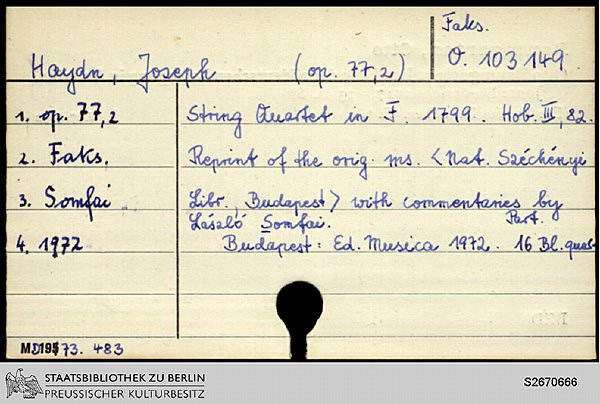 Faks.
O. 103 149
Haydn, Joseph (op. 77,2)
1. op. 77,2 String Quartet in F. 1799. Hob. III, 82.
2. Faks. Reprint of the orig. ms. <Nat. Széchényi
3. Somfai Libr., Budapest> with commentaries by
László Somfai. Part.
4. 1972 Budapest: Ed. Musica 1972. 16 Bl. quer-
73. 483
STAATSBIBLIOTHEK ZU BERLIN
PREUSSISCHER KULTURBESITZ
S2670666